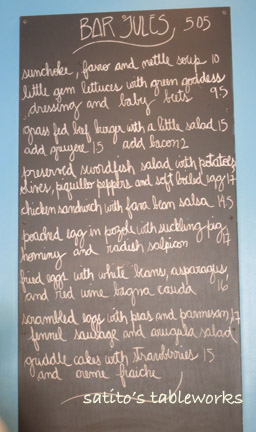 BAR JULES, 5.05
sunchoke, farro and nettle soup 10
little gem lettuces with green goddess
dressing and baby beets 9.5
grass fed beef burger with a little salad 15
add gruyere 1.5 add bacon 2
preserved swordfish salad with potatoes
olives, piquillo peppers and soft boiled egg 17
chicken sandwich with fava bean salsa 14.5
poached egg in pozole with suckling pig,
hominy and radish salpicon 17
fried eggs with white beans, asparagus,
and red wine bagna cauda 16
scrambled eggs with peas and parmesan, 17
fennel sausage and arugula salad
griddle cakes with strawberries 15
and creme fraiche
satito's tableworks